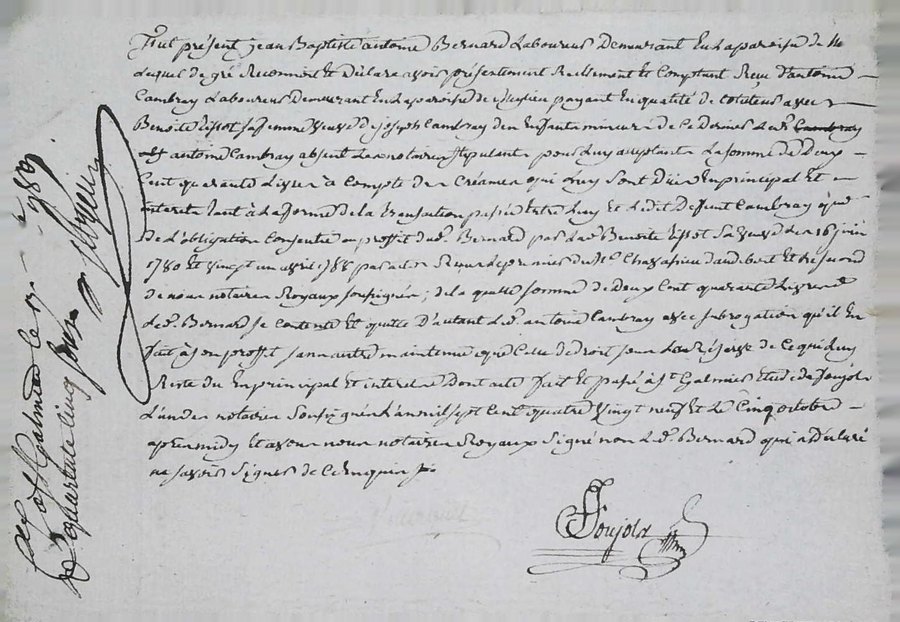 Fut présent jean Baptiste antoine Bernard Laboureur Demeurant En La paroisse de
Lequel de gré Reconnoit Et Déclare avoir présentement Réellement Et Comptant Reçu d'antoine
Cambray Laboureur Demeurant En La paroisse de payant En qualité de Cotuteur avec
Benoite tissot sa femme veuve de joseph Cambray des Enfants mineurs de Ce dernier Led. Cambray
antoine Cambray absent Les notaires stipulants pour Luy acceptants La somme de Deux
Cent quarante Livres à Compte des Créances qui Luy Sont Dües En principal Et
interets tant à La forme de la transaction passée Entre Luy et Ledit Deffunt Cambray que
De L'obligation Consentie au proffit dud. Bernard par Lad. Benoite tissot Sa veuve Les 16 juin
1780 Et vingt un avril 1788 par actes Reçus Le premier du Me. d'audibert Et Le second
de nous notaires Royaux soussignés ; de la quelle somme de Deux Cent quarante Livres
Led. Bernard se Contente Et quitte D'autant Led. antoine Cambray avec subrogation qu'il En
fait à son proffit sans autre maintenue que Celle de droit sous La Réserve de Ce qui Luy
Reste du En principal Et interets Dont acte fait Et passé à St Galmier Etude de Poujols
L'un des notaires Soussignés L'an mil sept Cent quatre vingt neuf Et Le Cinq octobre
après midy Et avons nous notaires Royaux Signé non Led. Bernard qui a Déclaré
ne savoir Signer de Ce Enquis
Poujols
St Galmier le 17